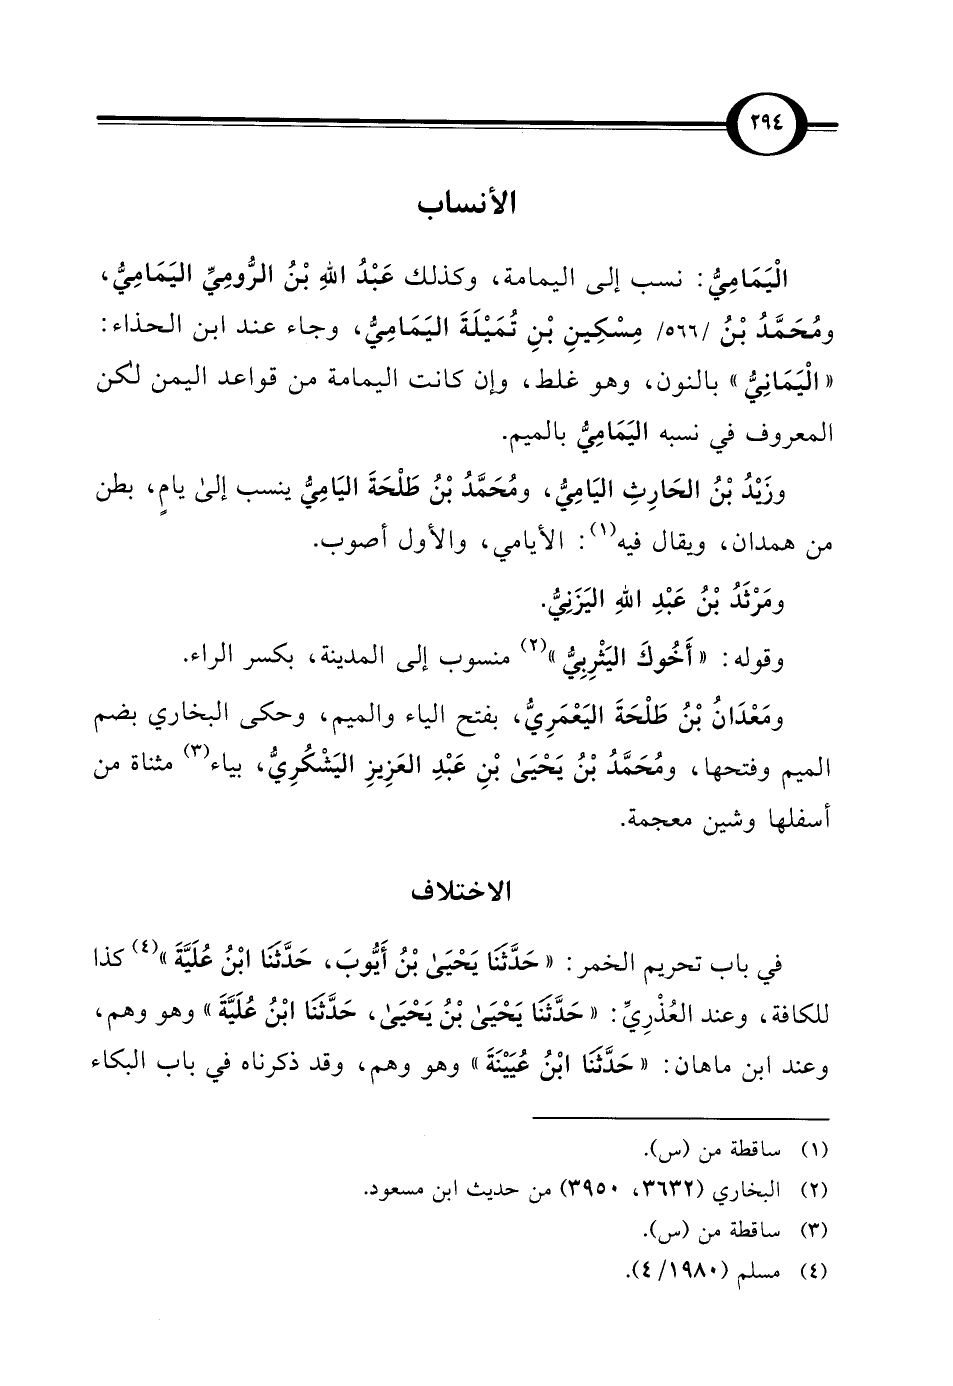 ٢٩٤
الأنساب
الْيَمَامِيُّ: نسب إلى اليمامة، وكذلك عَبْدُ اللهِ بْنُ الرُّومِيِّ اليَمَامِيُّ،
ومُحَمَّدُ بْنُ /٥٦٦/ مِسْكِينِ بْنِ تُمَيْلَةَ اليَمَامِيُّ، وجاء عند ابن الحذاء:
«الْيَمَانِيُّ» بالنون، وهو غلط، وإن كانت اليمامة من قواعد اليمن لكن
المعروف في نسبه اليَمَامِيُّ بالميم.
وزَيْدُ بْنُ الحَارِثِ اليَامِيُّ، ومُحَمَّدُ بْنُ طَلْحَةَ اليَامِيُّ ينسب إلىٰ يامٍ، بطن
من همدان، ويقال فيه(١): الأيامي، والأول أصوب.
ومَرْثَدُ بْنُ عَبْدِ اللهِ اليَزَنِيُّ.
وقوله: «أَخُوكَ اليَثْرِبِيُّ»(٢) منسوب إلى المدينة، بكسر الراء.
ومَعْدَانُ بْنُ طَلْحَةَ اليَعْمَرِيُّ، بفتح الياء والميم، وحكى البخاري بضم
الميم وفتحها، ومُحَمَّدُ بْنُ يَحْيَىٰ بْنِ عَبْدِ العَزِيزِ اليَشْكُرِيُّ، بياء(٣) مثناة من
أسفلها وشين معجمة.
الاختلاف
في باب تحريم الخمر: «حَدَّثَنَا يَحْيَىٰ بْنُ أَيُّوبَ، حَدَّثَنَا ابْنُ عُلَيَّةَ»(٤) كذا
للكافة، وعند العُذْرِيِّ: «حَدَّثَنَا يَحْيَىٰ بْنُ يَحْيَىٰ، حَدَّثَنَا ابْنُ عُلَيَّةَ» وهو وهم،
وعند ابن ماهان: «حَدَّثَنَا ابْنُ عُيَيْنَةَ» وهو وهم، وقد ذكرناه في باب البكاء
(١) ساقطة من (س).
(٢) البخاري (٣٦٣٢، ٣٩٥٠) من حديث ابن مسعود.
(٣) ساقطة من (س).
(٤) مسلم (١٩٨٠/٤).